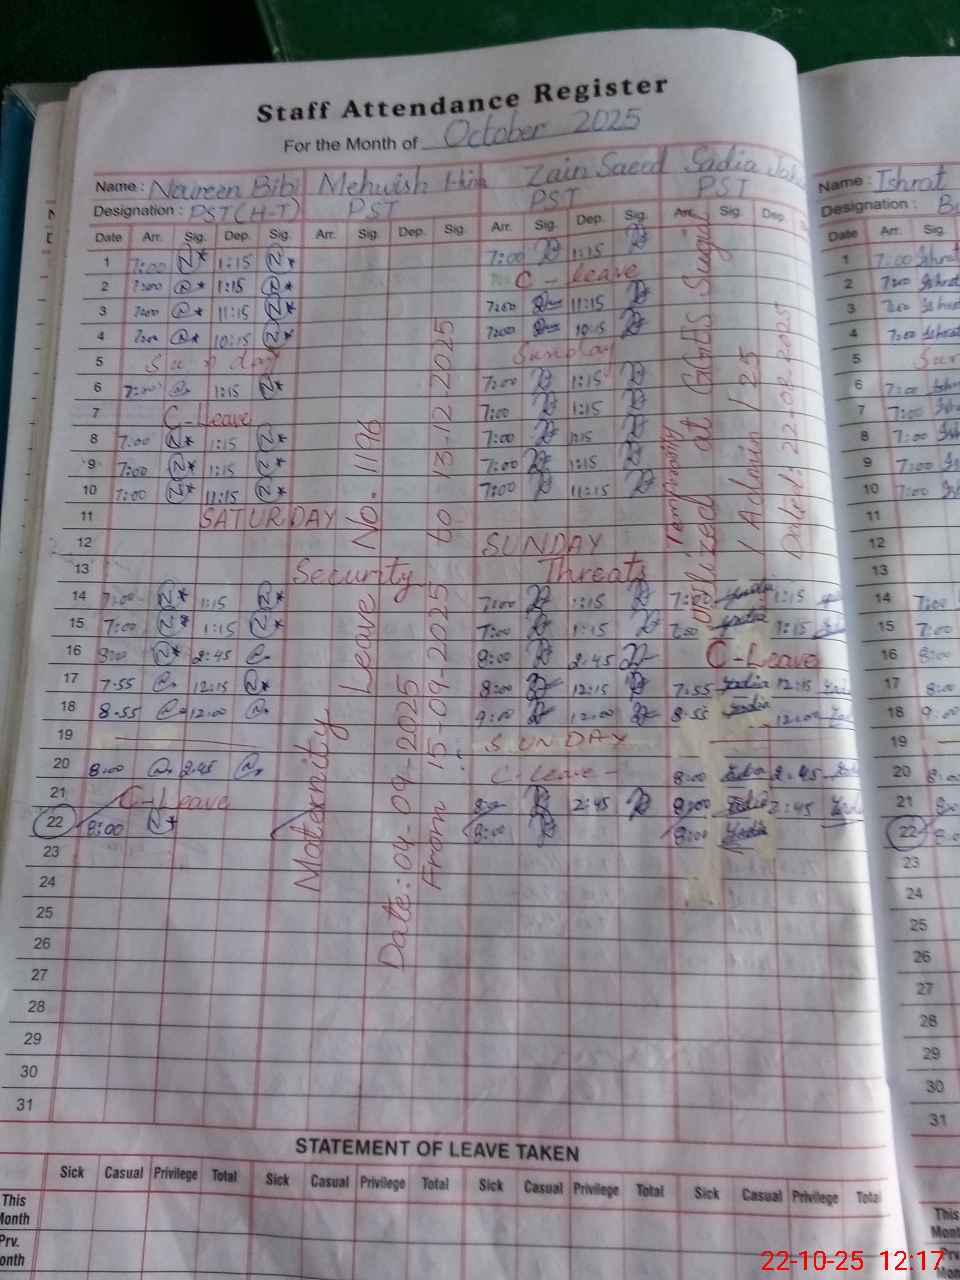 Staff Attendance Register
For the Month of October 2025
Name : Naureen Bibi Mehwish Zain Saeed Sadia Name : Ishrat
Designation : PST (H-T) PST PST PST Designation :
Date Arr. Sig. Dep. Sig. Arr. Sig. Dep. Sig. Arr. Sig. Dep. Sig. Arr. Sig. Dep. Date Arr. Sig.
1 7:00 1:15 7:00 1:15 1 7:00 Ishrat
2 7:00 1:15 C - Leave 2 7:00 Ishrat
3 7:00 11:15 7:00 11:15 3 7:00 Ishrat
4 7:00 10:15 7:00 10:15 4 7:00 Ishrat
5 Sunday Sunday 5
6 7:00 1:15 7:00 1:15 6 7:00
7 C-Leave 7:00 1:15 7 7:00
8 7:00 1:15 7:00 1:15 8 7:00
9 7:00 1:15 7:00 1:15 9 7:00
10 7:00 11:15 7:00 11:15 10 7:00
11 SATURDAY 11
12 SUNDAY 12
13 Security Threats 13
14 7:00 1:15 7:00 1:15 7:00 1:15 14 7:00
15 7:00 1:15 7:00 1:15 7:00 1:15 15 7:00
16 8:00 2:45 8:00 2:45 C-Leave 16 8:00
17 7.55 12:15 8:00 12:15 7.55 Sadia 12:15 17 8:00
18 8.55 12:00 9:00 12:00 8.55 Sadia 12:00 18 9:00
19 SUNDAY 19
20 8:00 2:45 C-Leave 8:00 Sadia 2:45 20 8:00
21 C-Leave 2:45 8:00 Sadia 2:45 21
22 8:00 8:00 8:00 Sadia 22 8:0
23 23
24 24
25 25
26 26
27 27
28 28
29 29
30 30
31 31
Maternity Leave No. 1196
Date: 04-09-2025
From 15-09-2025 to 13-12-2025
Temporarily
utilized at GGPS
Dated: 22-09-2025
STATEMENT OF LEAVE TAKEN
Sick Casual Privilege Total Sick Casual Privilege Total Sick Casual Privilege Total Sick Casual Privilege Total
This Month This Month
Prv. Month Prv.
22-10-25 12:17